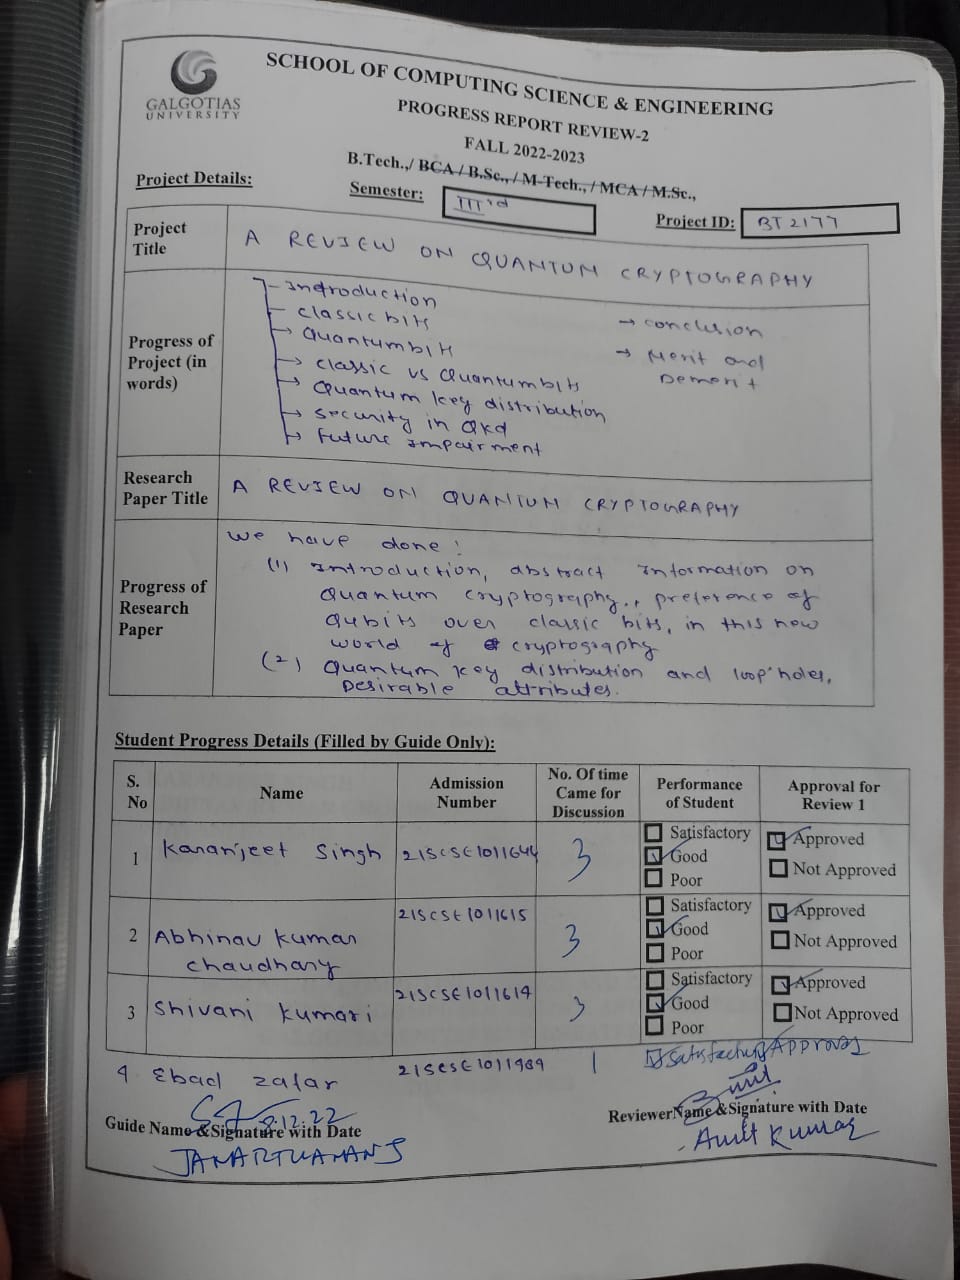 GALGOTIAS
UNIVERSITY
SCHOOL OF COMPUTING SCIENCE & ENGINEERING
PROGRESS REPORT REVIEW-2
FALL 2022-2023
B.Tech.,/ BCA / B.Sc., / M-Tech., / MCA / M.Sc.,
Project Details:
Semester: IIIrd
Project ID: BT2177
Project Title
A REVIEW ON QUANTUM CRYPTOGRAPHY
Progress of Project (in words)
Introduction
classic bits
Quantum bits
→ classic vs Quantum bits
→ Quantum key distribution
→ security in Qkd
→ future Impairment
→ conclusion
→ Merit and
Demerit
Research Paper Title
A REVIEW ON QUANTUM CRYPTOGRAPHY
Progress of Research Paper
We have done:
(1) Introduction, abstract Information on
Quantum cryptography, preference of
Qubits over classic bits, in this now
world of cryptography
(2) Quantum key distribution and loop holes,
Desirable attributes.
Student Progress Details (Filled by Guide Only):
S. No Name Admission Number No. Of time Came for Discussion Performance of Student Approval for Review 1
1 Karanjeet Singh 21SCSE1011644 3 Satisfactory Good Poor Approved Not Approved
2 Abhinav kumar chaudhary 21SCSE1011615 3 Satisfactory Good Poor Approved Not Approved
3 Shivani kumari 21SCSE1011614 3 Satisfactory Good Poor Approved Not Approved
4 Ebad zafar 21SCSE1011989 1 Satisfactory Approved
8.12.22
Guide Name & Signature with Date
JANARTHANAN S
Reviewer Name & Signature with Date
Amit Kumar